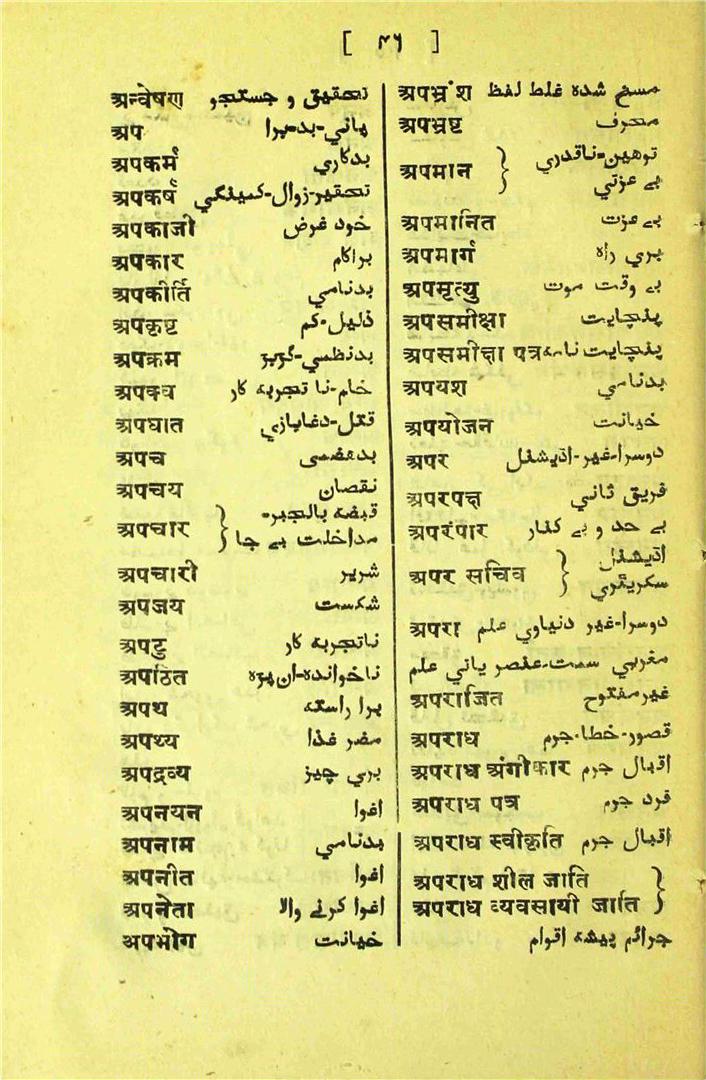 [ ۴۶ ]
अन्वेषण تحقیق و جستجو
अप ہانی-بد-برا
अपकर्म بدکاری
अपकर्ष تحقیر-زوال-کمینگی
अपकाजी خود غرض
अपकार براکام
अपकीर्ति بدنامی
अपकृष्ट ذلیل-کم
अपक्रम بدنظمی-گریز
अपक्व خام-نا تجربہ کار
अपघात قتل-دغابازی
अपच بدہضمی
अपचय نقصان
अपचार { قبضہ بالجبر-
مداخلت بے جا
अपचारी شریر
अपजय شکست
अपटु ناتجربہ کار
अपठित ناخواندہ-ان پڑہ
अपथ برا راستہ
अपथ्य مضر غذا
अपद्रव्य بری چیز
अपनयन اغوا
अपनाम بدنامی
अपनीत اغوا
अपनेता اغوا کرنے والا
अपभोग خیانت
अपभ्रंश مسخ شدہ غلط لفظ
अपभ्रष्ट منحرف
अपमान } توہین-ناقدری
بے عزتی
अपमानित بے عزت
अपमार्ग بری راہ
अपमृत्यु بے وقت موت
अपसमीक्षा پنچایت
अपसमीक्षा पत्र پنچایت نامہ
अपयश بدنامی
अपयोजन خیانت
अपर دوسرا-غیر-اڈیشنل
अपरपक्ष فریق ثانی
अपरंपार بے حد و بے کنار
अपर सचिव } اڈیشنل
سکریٹری
अपरा دوسرا-غیر دنیاوی علم
مغربی سمت-عنصر یانی علم
अपराजित غیر مفتوح
अपराध قصور-خطا-جرم
अपराध अंगीकार اقبال جرم
अपराध पत्र فرد جرم
अपराध स्वीकृति اقبال جرم
अपराध शील जाति }
अपराध व्यवसायी जाति
جرائم پیشہ اقوام